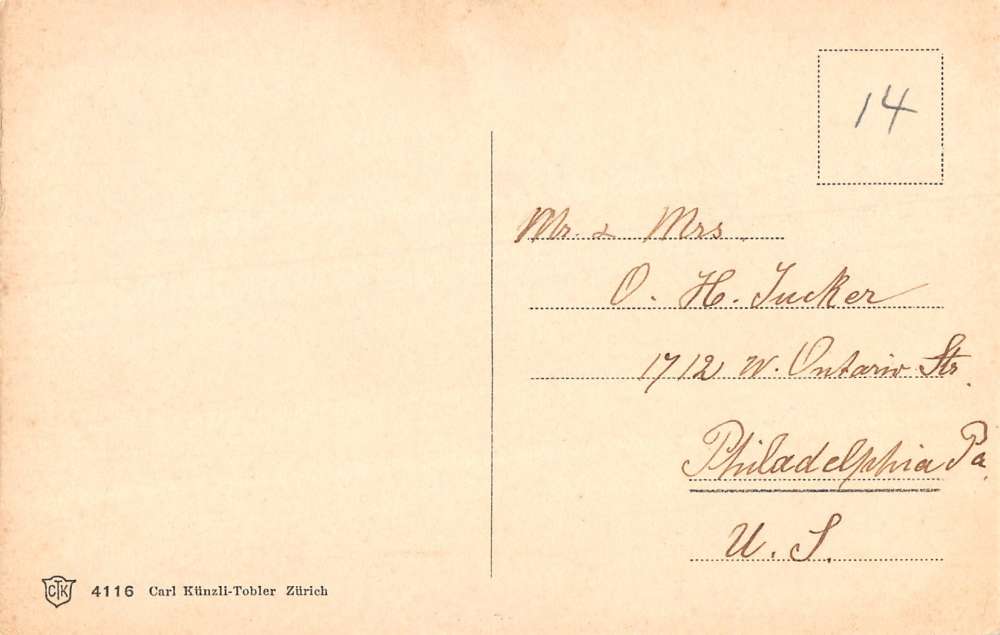 14
Mr. & Mrs.
O. H. Tucker
1712 W. Ontario Str.
Philadelphia Pa.
U. S.
CTK 4116 Carl Künzli-Tobler Zürich